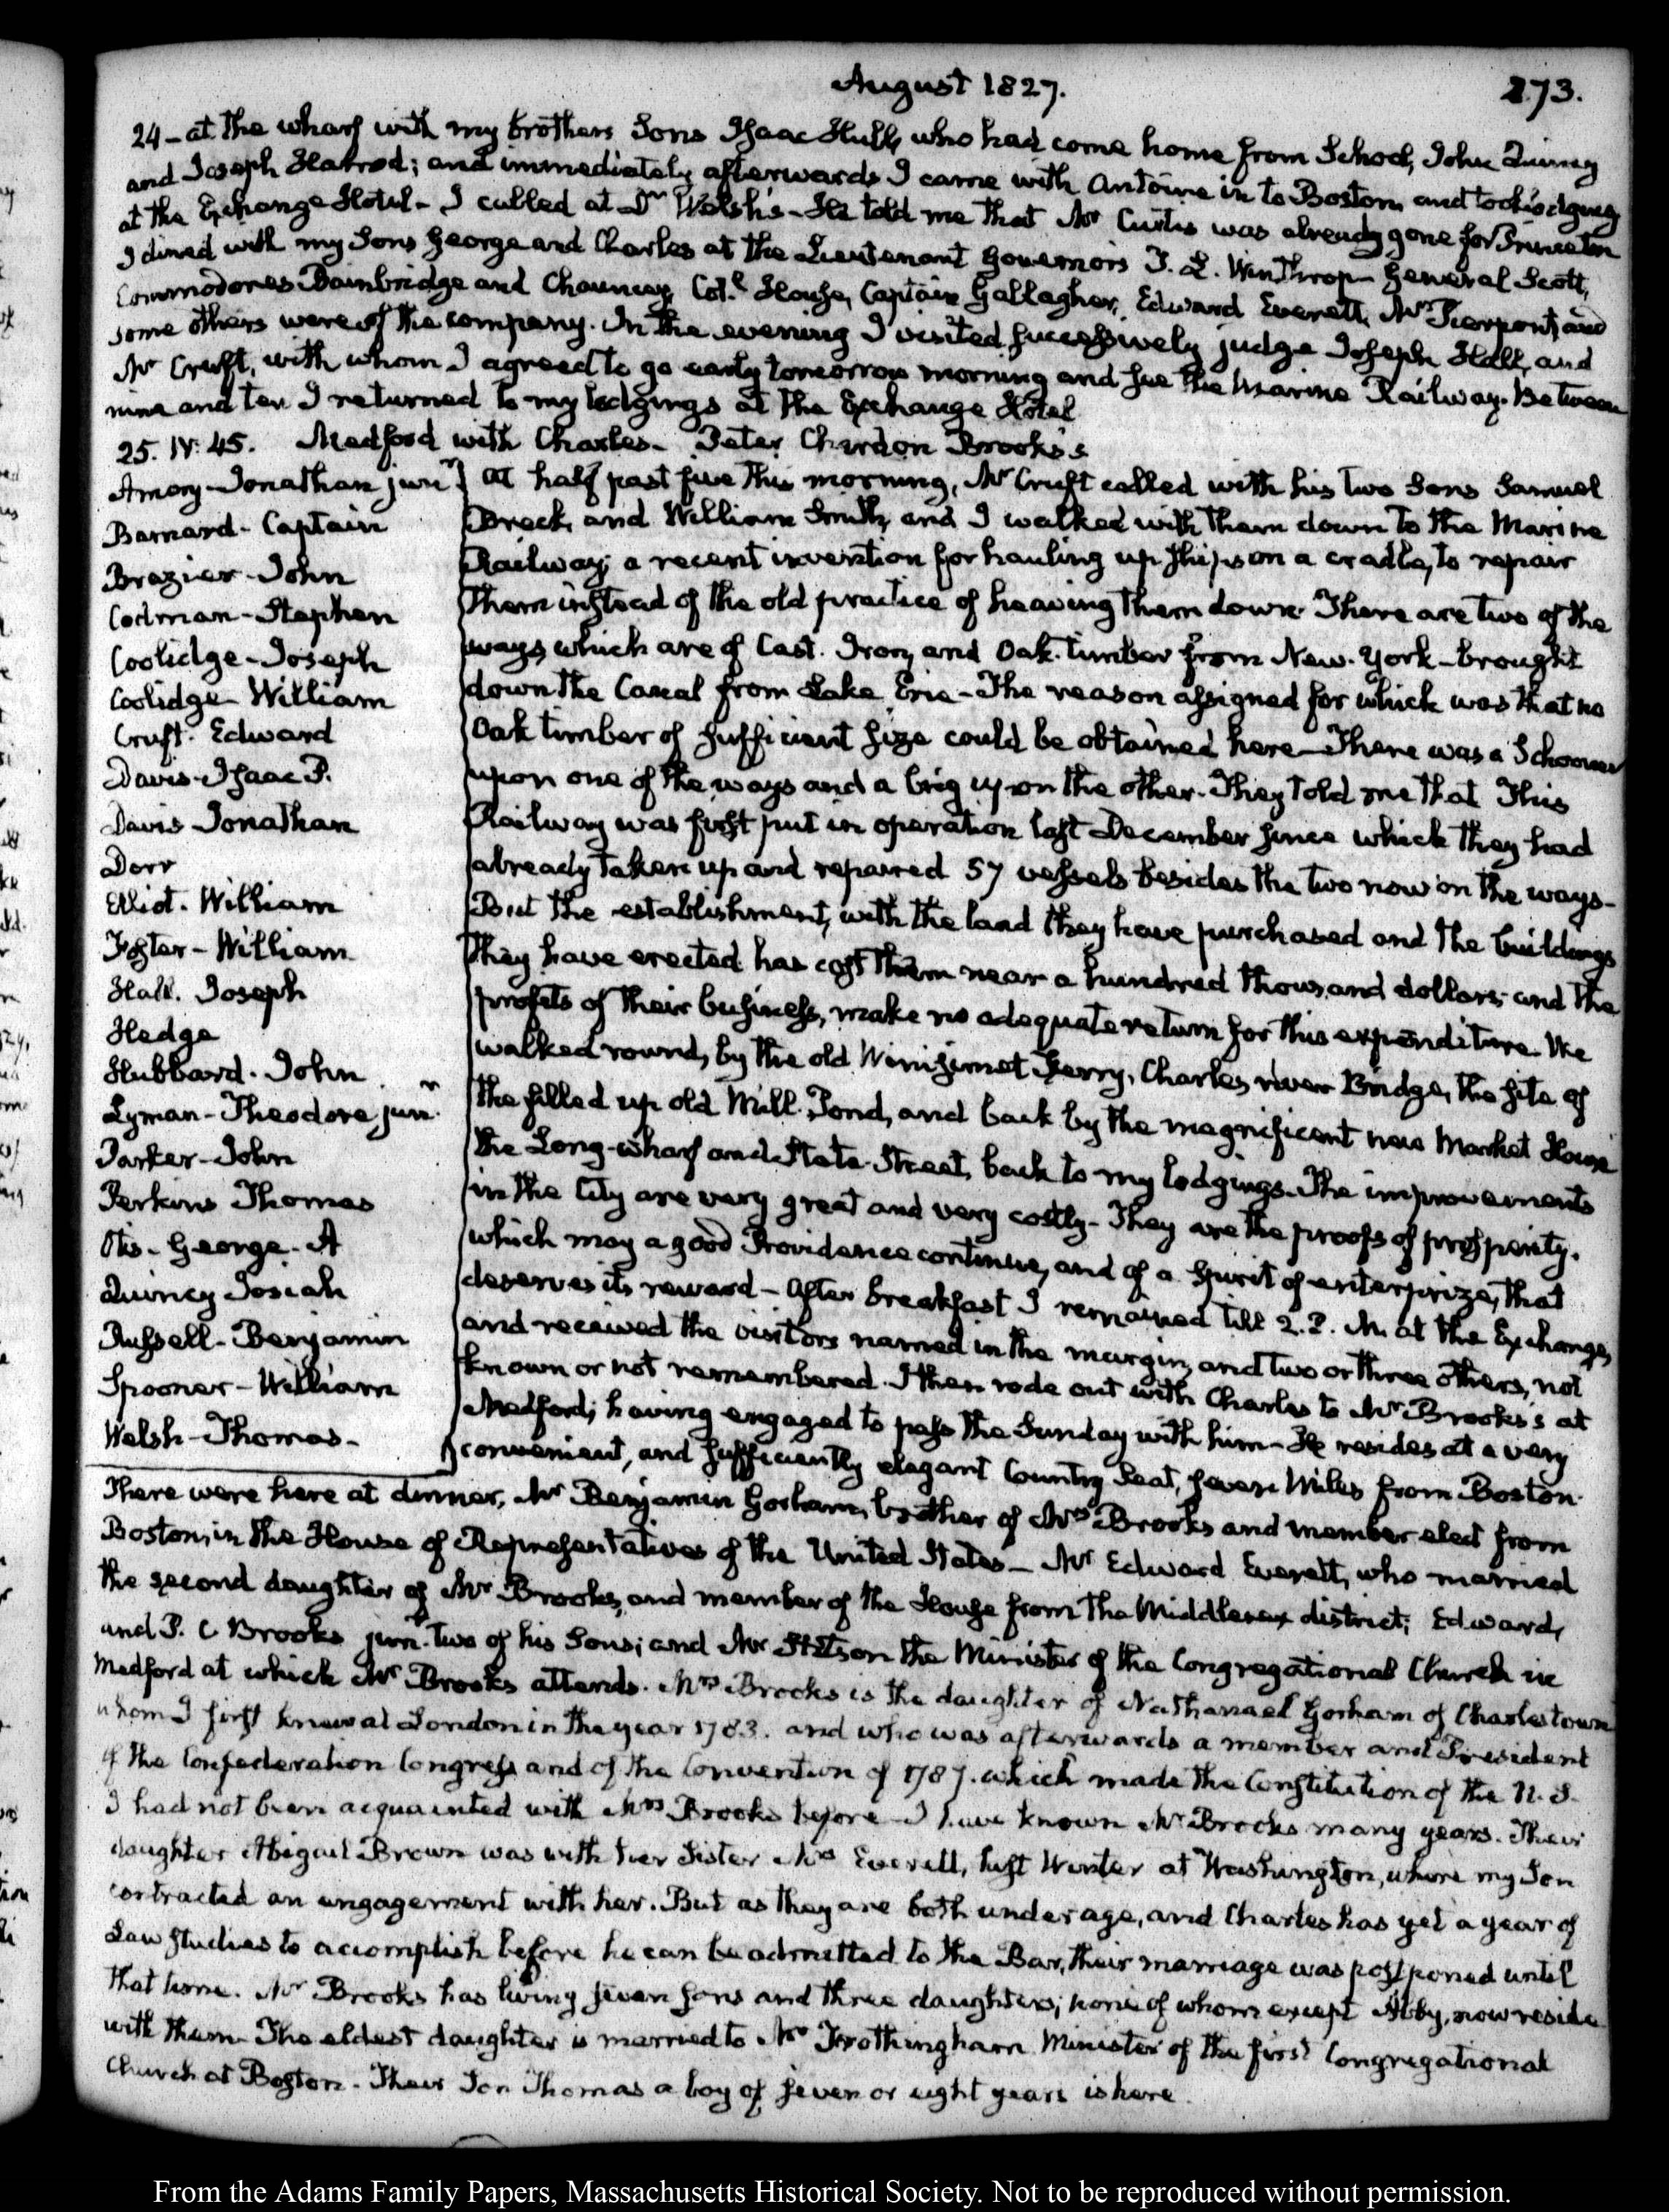 August 1827.
273.
24 - at the wharf with my brothers Sons Isaac Hull, who had come home from School, John Quincy
and Joseph Harrod; and immediately afterwards I came with Antoine in to Boston, and took lodgings
at the Exchange Hotel - I called at Dr Welsh's - He told me that Mr Curtis was already gone for Princeton
I dined with my Sons George and Charles at the Lieutenant Governors T. L. Winthrop - General Scott,
Commodores Bainbridge and Chauncey, Col.l House, Captain Gallagher, Edward Everett, Mr Pierpont, and
some others were of the company. In the evening I visited successively judge Joseph Hall, and
Mr Cruft, with whom I agreed to go early tomorrow morning and see the Marine Railway. Between
nine and ten I returned to my lodgings at the Exchange Hotel
25. IV. 45. Medford with Charles - Peter Chardon Brooks's
Amory - Jonathan junr
Barnard - Captain
Brazier - John
Codman - Stephen
Coolidge - Joseph
Coolidge - William
Cruft. Edward
Davis - Isaac P.
Davis Jonathan
Dorr
Eliot. William
Foster - William
Hall. Joseph
Hedge
Hubbard. John
Lyman - Theodore junr.
Parker - John
Perkins Thomas
Otis - George - A
Quincy Josiah
Russell - Benjamin
Spooner - William
Welsh - Thomas -
At half past five this morning, Mr Cruft called with his two Sons Samuel
Breck, and William Smith, and I walked with them down to the Marine
Railway; a recent invention for hauling up ships on a cradle, to repair
them instead of the old practice of heaving them down. There are two of the
ways which are of Cast. Iron, and Oak. timber from New-York - brought
down the Canal from Lake Erie - The reason assigned for which was that no
Oak timber of sufficient size could be obtained here - There was a Schooner
upon one of the ways and a brig upon the other. They told me that this
Railway was first put in operation last December since which they had
already taken up and repaired 57 vessels besides the two now on the ways -
But the establishment, with the land they have purchased and the buildings
they have erected has cost them near a hundred thousand dollars; and the
profits of their business, make no adequate return for this expenditure. We
walked round, by the old Winisimet Ferry, Charles river Bridge, the site of
the filled up old Mill. Pond, and back by the magnificent new Market House
the Long-wharf and State-Street, back to my lodgings. The improvements
in the City are very great and very costly - They are the proofs of prosperity.
which may a good Providence continue, and of a Spirit of enterprize, that
deserves its reward - After breakfast I remained till 2. P. M. at the Exchange,
and received the visitors named in the margin, and two or three others, not
known or not remembered. I then rode out with Charles to Mr Brooks's at
Medford; having engaged to pass the Sunday with him - He resides at a very
convenient, and sufficiently elegant Country Seat, seven Miles from Boston.
There were here at dinner, Mr Benjamin Gorham, brother of Mrs Brooks and member elect from
Boston, in the House of Representatives of the United States - Mr Edward Everett, who married
the second daughter of Mr Brooks, and member of the House from the Middlesex district; Edward,
and P. C Brooks junr. two of his Sons; and Mr Stetson the Minister of the Congregational Church in
Medford at which Mr Brooks attends. Mrs Brooks is the daughter of Nathanael Gorham of Charlestown
whom I first knew at London in the year 1783. and who was afterwards a member and President
of the Confederation Congress and of the Convention of 1787. which made the Constitution of the U. S.
I had not been acquainted with Mrs Brooks before - I have known Mr Brooks many years. Their
daughter Abigail Brown was with her Sister Mrs Everett, last Winter at Washington, where my Son
contracted an engagement with her. But as they are both under age, and Charles has yet a year of
Law Studies to accomplish before he can be admitted to the Bar, their marriage was postponed until
that time. Mr Brooks has living seven sons and three daughters; none of whom except Abby, now reside
with them - The eldest daughter is married to Mr Frothingham Minister of the first Congregational
Church at Boston. Their Son Thomas a boy of seven or eight years is here.
From the Adams Family Papers, Massachusetts Historical Society. Not to be reproduced without permission.